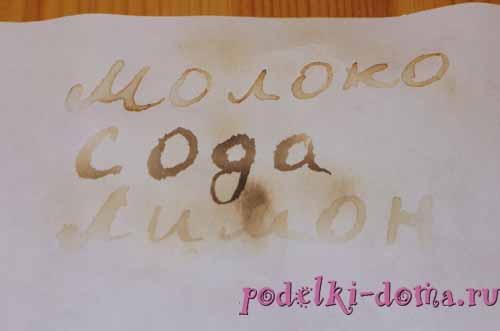 Молоко
Сода
Лимон
podelki-doma.ru